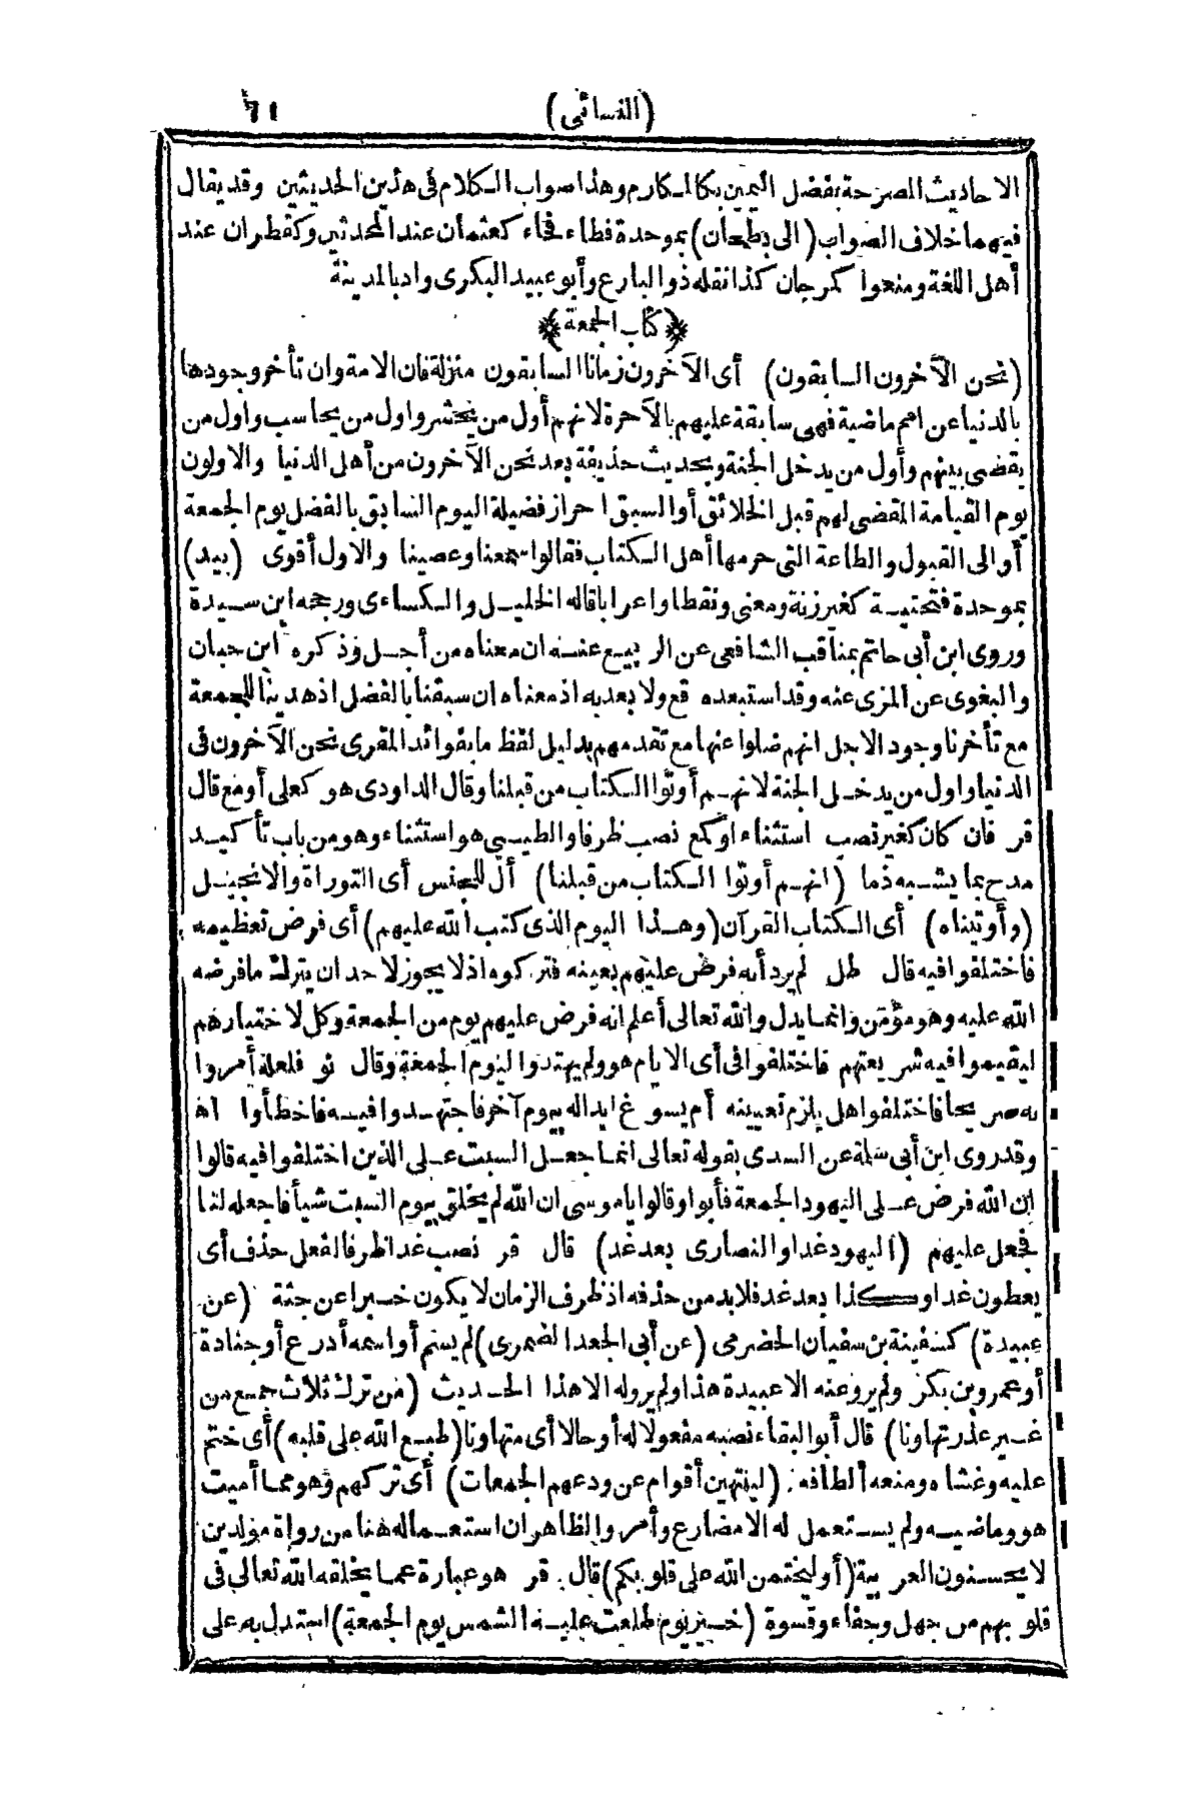 (النسائي) ٦١
الاحاديث المصرحة بفضل اليمين بكالمكارم وهذا صواب الكلام في هذين الحديثين وقد يقال
فيهما خلاف الصواب (الى بطحان) بموحدة فطاء فحاء كعثمان عند المحدثين وكقطران عند
أهل اللغة ومنعوا كمرجان كذا نقله ذو البارع وأبو عبيد البكرى واد بالمدينة
﴿كتاب الجمعة﴾
(نحن الآخرون السابقون) أى الآخرون زمانا السابقون منزلة فان الامة وان تأخر وجودها
بالدنيا عن امم ماضية فهى سابقة عليهم بالآخرة لانهم أول من يحشر واول من يحاسب واول من
يقضى بينهم وأول من يدخل الجنة وبحديث حذيفة بعد نحن الآخرون من أهل الدنيا والاولون
يوم القيامة المقضى لهم قبل الخلائق أو السبق احراز فضيلة اليوم السابق بالفضل يوم الجمعة
أو الى القبول والطاعة التى حرمها أهل الكتاب فقالوا سمعنا وعصينا والاول أقوى (بيد)
بموحدة فتحتية كغير زنة ومعنى ونقطا واعرابا قاله الخليل والكساءى ورجحه ابن سيدة
وروى ابن أبى حاتم بمناقب الشافعى عن الربيع عنه ان معناه من أجل وذكره ابن حبان
والبغوى عن المزى عنه وقد استبعده قع ولا بعد به اذ معناه ان سبقنا بالفضل اذ هدينا للجمعة
مع تأخرنا وجود الاجل انهم ضلوا عنها مع تقدمهم بدليل لفظ ما بفوائد المقرى نحن الآخرون فى
الدنيا واول من يدخل الجنة لانهم أوتوا الكتاب من قبلنا وقال الداودى هو كعلى أو مع قال
قر فان كان كغير نصب استثناء او كمع نصب ظرفا والطيبى هو استثناء وهو من باب تأكيد
مدح بما يشبه ذما (انهم أوتوا الكتاب من قبلنا) أل للجنس أى التوراة والانجيل
(وأوتيناه) أى الكتاب القرآن (وهذا اليوم الذى كتب الله عليهم) أى فرض تعظيمه
فاختلفوا فيه قال طل لم يرد أنه فرض عليهم بعينه فتركوه اذ لا يجوز لاحد ان يترك ما فرضه
الله عليه وهو مؤمن وانما يدل والله تعالى أعلم انه فرض عليهم يوم من الجمعة وكل لاختيارهم
ليقيموا فيه شريعتهم فاختلفوا فى أى الايام هو ولم يهتدوا ليوم الجمعة وقال نو فلعله أمروا
به صريحا فاختلفوا هل يلزم تعيينه أم يسوغ ابداله بيوم آخر فاجتهدوا فيه فاخطأوا اه
وقد روى ابن أبى سلمة عن السدى بقوله تعالى انما جعل السبت على الذين اختلفوا فيه قالوا
ان الله فرض على اليهود الجمعة فأبوا وقالوا يا موسى ان الله لم يخلق بيوم السبت شيأ فاجعله لنا
فجعل عليهم (اليهود غدا والنصارى بعد غد) قال قر نصب غدا ظرفا لفعل حذف أى
يعطون غدا وكذا بعد غد فلا بد من حذفه اذ ظرف الزمان لا يكون خبرا عن جثة (عن
عبيدة) كسفينة بن سفيان الحضرمى (عن أبى الجعد الضمرى) لم يسم أو اسمه أدرع أو جنادة
أو عمرو بن بكر ولم يرو عنه الا عبيدة هذا ولم يرو له الا هذا الحديث (من ترك ثلاث جمع من
غير عذر تهاونا) قال أبو البقاء نصبه مفعولا له أو حالا أى متهاونا (طبع الله على قلبه) أى ختم
عليه وغشاه ومنعه ألطافه (لينتهين أقوام عن ودعهم الجمعات) أى تركهم وهو مما أميت
هو وماضيه ولم يستعمل له الا مضارع وأمر والظاهر ان استعماله هنا من رواة مولدين
لا يحسنون العربية (أو ليختمن الله على قلوبكم) قال قر هو عبارة عما يخلقه الله تعالى فى
قلوبهم من جهل وجفاء وقسوة (خير يوم طلعت عليه الشمس يوم الجمعة) استدل به على